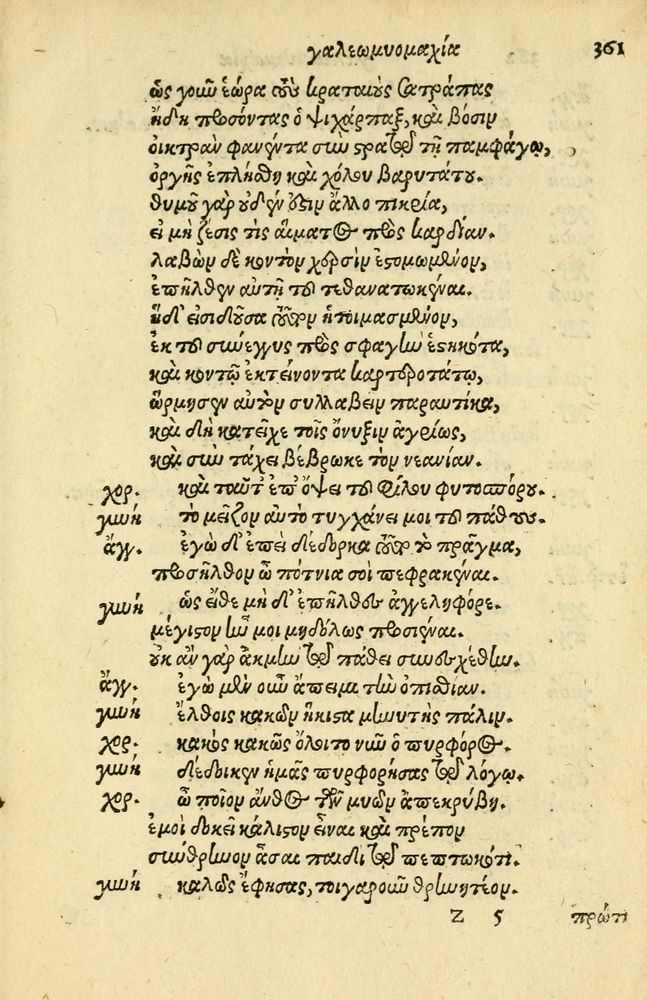 γαλεωμυομαχία 361
ὡς γοῦν ἑώρα τοὺς κρατοιοὺς σατράπας
ἤδη πεσόντας ὁ ψιχάρπαξ, καὶ βόσιν
οἰκτρὰν φανέντα σὺν στρατῷ τῇ παμφάγῳ,
ὀργῆς ἐπλήσθη καὶ χόλου βαρυτάτου.
θυμοῦ γὰρ οὐδέν ἐστιν ἄλλο πικρία,
εἰ μὴ ζέσις τις αἵματος πρὸς καρδίαν.
λαβὼν δὲ κοντὸν χερσὶν ἐστομωμένον,
ἐπῆλθεν αὐτῇ τοῦ τεθανατωκέναι.
ἡ δ' εἰσιδοῦσα τοῦτον ἡτοιμασμένον,
ἐκ τοῦ σύνεγγυς πρὸς σφαγὴν ἑστηκότα,
καὶ κοντῷ ἐκτείνοντα καρτερωτάτῳ,
ὥρμησεν αὐτὸν συλλαβεῖν παραυτίκα,
καὶ δὴ κατεῖχε τοῖς ὄνυξιν ἀγρίως,
καὶ σὺν τάχει βέβρωκε τὸν νεανίαν.
χορ. καὶ ταῦτ' ἐπ' ὄψει τοῦ φίλου φυτοσπόρου.
γυνή τὸ μεῖζον αὐτὸ τυγχάνει μοι τοῦ πάθους.
ἄγγ. ἐγὼ δ' ἐπεὶ δέδορκα τοῦτο τὸ πρᾶγμα,
προσῆλθον ὦ πότνια σοὶ πεφρακέναι.
γυνή ὡς εἴθε μὴ δ' ἐπῆλθες ἀγγεληφόρε.
μέγιστον ἦν μοι μηδόλως προσιέναι.
οὐκ ἂν γὰρ ἀκμὴν τῷ πάθει συνεσχέθην.
ἄγγ. ἐγὼ μὲν οὖν ἄπειμι τὴν ὀπισθίαν.
γυνή ἔλθοις κακῶν ἥκιστα μηνυτὴς πάλιν.
χορ. κακὸς κακῶς ὄλοιτο νῦν ὁ πυρφόρος.
γυνή δέδοικεν ἡμᾶς πυρφορήσας τῷ λόγῳ.
χορ. ὦ ποῖον ἄνθος τῶν μυῶν ἀπεκρύβη.
ἐμοὶ δοκεῖ κάλιστον εἶναι καὶ πρέπον
σύνθρηνον ᾆσαι παιδὶ τῷ πεπτωκότι.
γυνή καλῶς ἔφησας, τοιγαροῦν θρηνητέον.
Z 5 πρῶτι